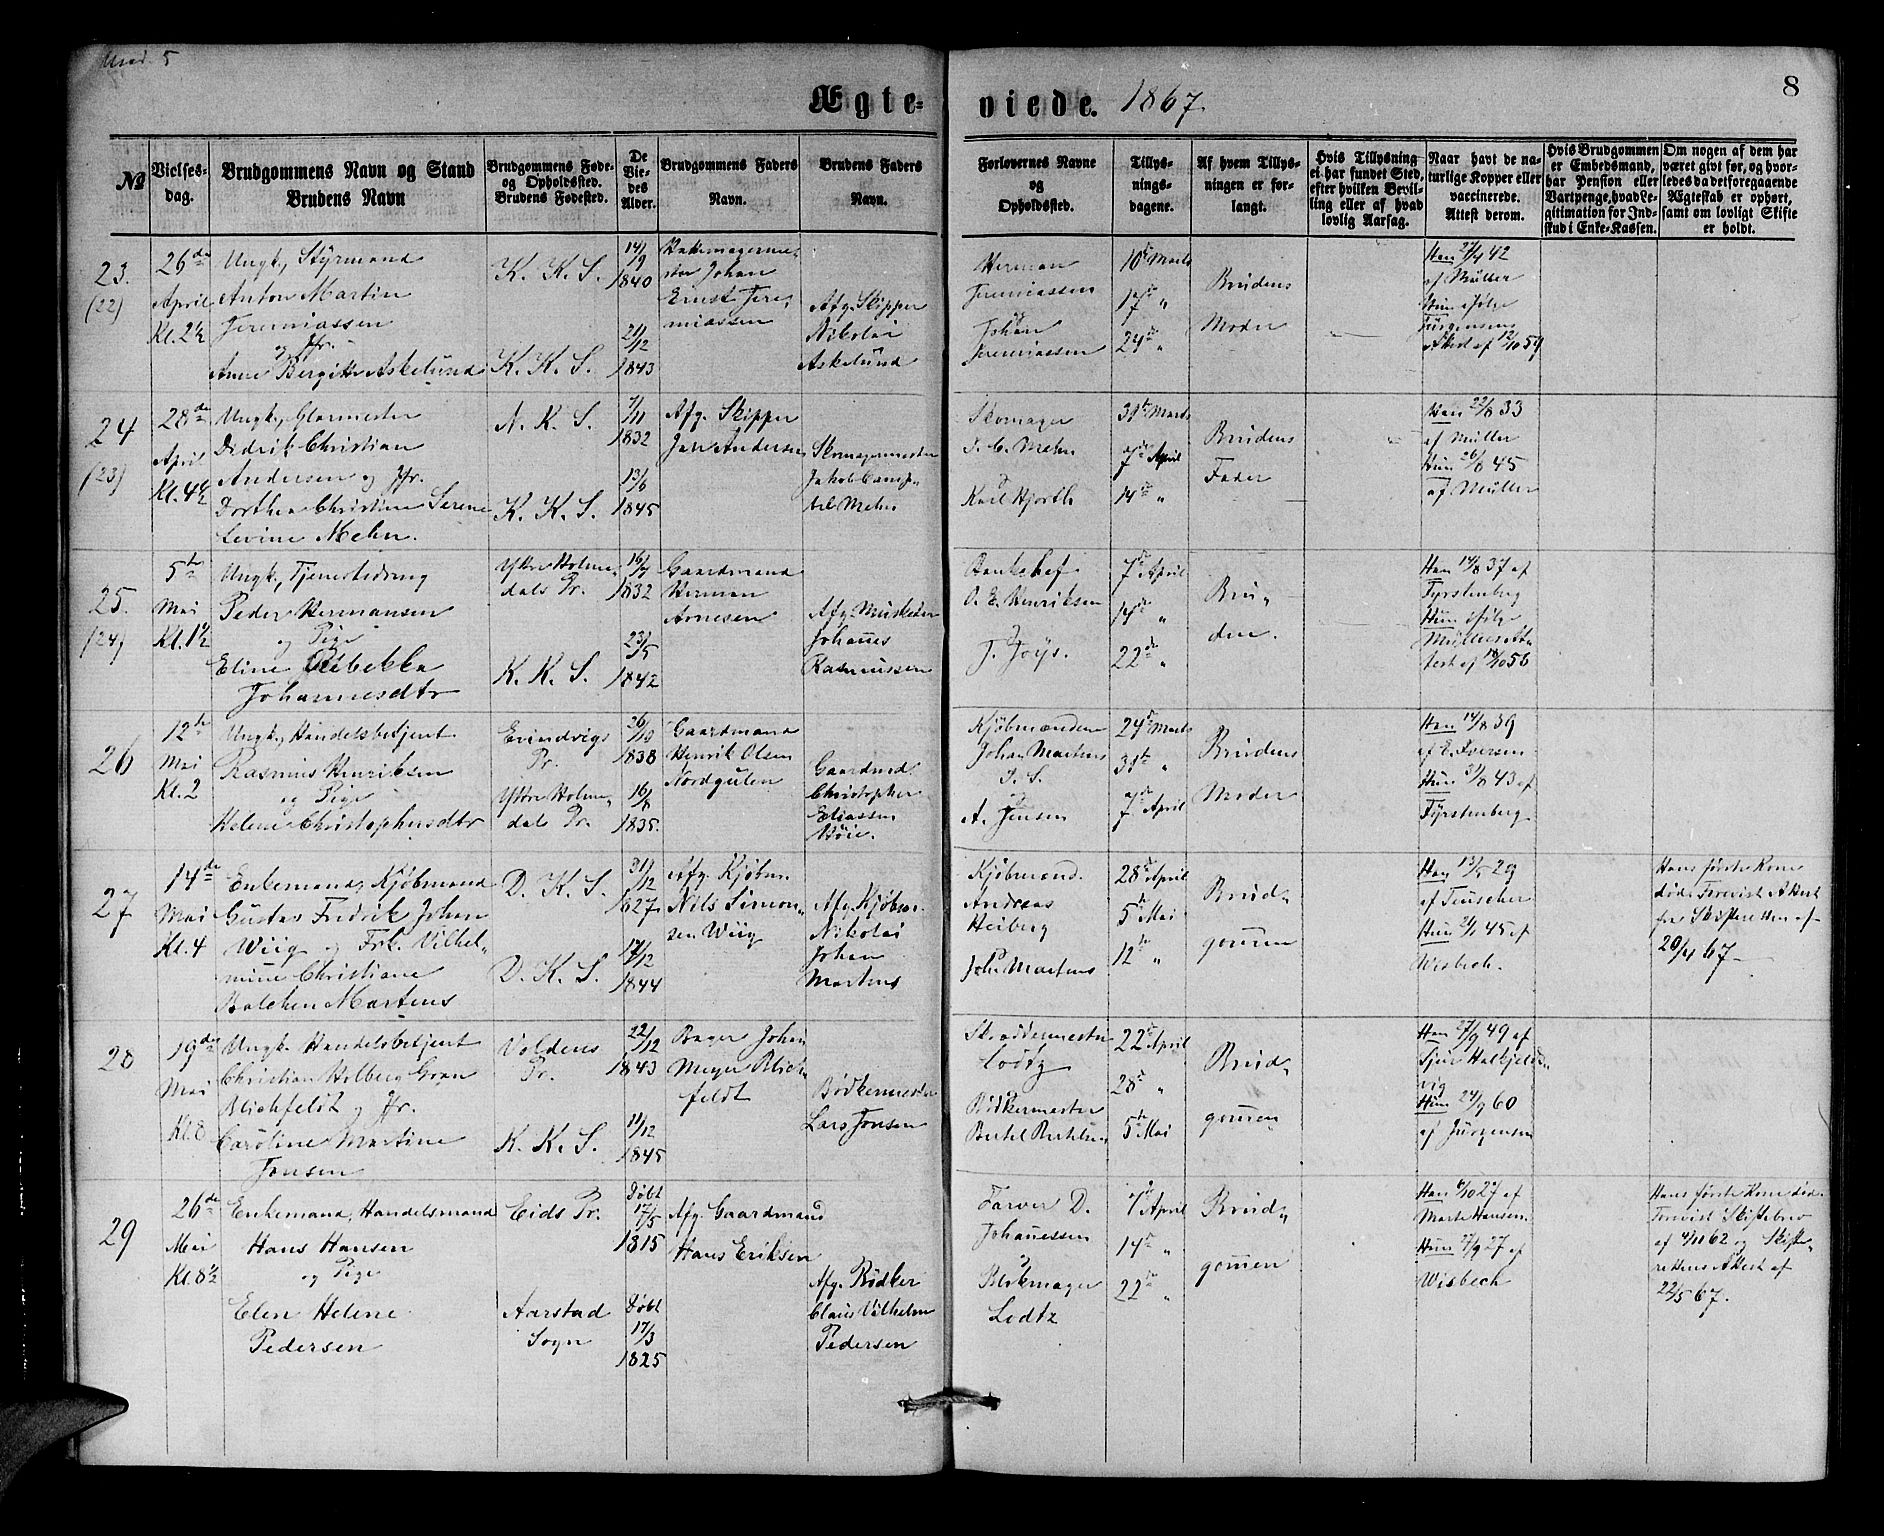 Ægte-
viede. 1867.
8
№
Vielses-
dag.
Brudgommens Navn og Stand
Brudens Navn
Brudgommens Føde-
og Opholdssted.
Brudens Fødested.
De
Vie-
des
Alder.
Brudgommens Faders
Navn.
Brudens Faders
Navn.
Forlovernes Navne
og
Opholdssted.
Tillys-
nings-
dagene.
Af hvem Tillys-
ningen er for-
langt.
Hvis Tillysning
ei har fundet Sted,
efter hvilken Bevil-
ling eller af hvad
lovlig Aarsag.
Naar havt de na-
turlige Kopper eller
vaccinerede.
Attest derom.
Hvis Brudgommen
er Embedsmand,
har Pension eller
Vartpenge, hvad Le-
gitimation for Ind-
skud i Enke-Kassen.
Om nogen af dem har
været givt før, og hvor-
ledes da det foregaaende
Ægteskab er ophørt,
samt om lovligt Skifte
er holdt.
23.
(22)
26de
April
Kl. 2½
Ungk., Styrmand
Anton Martin
Jeremiassen
og Jfr.
Anne Bergitte Askelund
K. K. S.
K. K. S.
14/9
1840
21/12
1843
Johan
Ernst Jere-
miassen
Afg. Skipper
Nikolai
Askelund
Herman
Jeremiassen
og
Johan
Jeremiassen
10de Marts
17de "
24de "
Brudens
Moder
Han 27/4 42
af Müller
Hun ifølge
Jürgensens
Attest af 12/10 59
24
(23)
28de
April
Kl. 4½
Ungk., Glarmester
Didrik Christian
Andersen og Jfr.
Dorthea Christine Serene
Levine Mehn.
N. K. S.
K. K. S.
7/11
1832
13/6
1845
Afg. Skipper
Jan Andersen
Skomagermester
Jakob
Mehn
Skomager
J. C. Mehn
og
Karl Hjorth
31te Marts
7de April
14de "
Brudens
Fader
Han 22/8 33
af Müller
Hun 26/8 45
af Müller
25.
(24)
5te
Mai
Kl. 1½
Ungk., Tjenestedreng
Peder Hermansen
og Pige
Eline Rebekka
Johannesdtr
Yttre Holme-
dals Pr.
K. K. S.
16/7
1832
23/5
1842
Gaardmand
Herman
Arnesen
Afg. Musketer
Johannes
Rasmussen
O. E. Henriksen
og
J. Joys.
7de April
14de "
22de "
Bru-
den.
Han 14/8 37 af
Fyrstenberg
Hun ifølge
Müllers At-
test af 18/10 56
26
12te
Mai
Kl. 2
Ungk., Handelsbetjent
Rasmus Henriksen
og Pige
Helene Christophersdtr
Evindvigs
Pr.
Yttre Holme-
dals Pr.
26/10
1838
16/8
1835.
Gaardmand
Henrik Olsen
Nordgulen
Gaardmd.
Christopher
Eliassen
Høie.
Kjøbmændene
Johan Martens
og
A. Jensen
24de Marts
31te "
7de April
Brudens
Moder
Han 14/8 39
af E. Iversen
Hun 31/8 43 af
Fyrstenberg
27
14de
Mai
Kl. 4
Enkemand, Kjøbmand
Gustav Fredrik Johan
Wiig og Frk. Vilhel-
mine Christiane
Balchen Martens
D. K. S.
D. K. S.
31/12
1827.
17/12
1844
Afg. Kjøbm.
Nils Simon-
sen Wiig
Afg. Kjøbm.
Nikolai
Johan
Martens
Kjøbmænd.
Andreas
Heiberg
Joh. Martens
28de April
5te Mai
12te "
Brud-
gommen
Han 13/5 29
af Teuscher
Hun 21/1 45 af
Wisbech.
Hans første Kone
død. Forevist Attest
fra Skifteretten af
29/4 67.
28
19de
Mai
Kl. 8
Ungk. Handelsbetjent
Christian Holberg Gran
Blichfeldt og Jfr.
Caroline Martine
Jonsen
Voldens
Pr.
K. K. S.
22/12
1843
11/12
1845
Bager Johan
Meyer Blich-
feldt
Bødkermester
Lars Jonsen
Skreddermester
Lodtz
og
Bødkermester
Bertel Bertelsen
22de April
28de "
5te Mai
Brud-
gommen
Han 27/9 49 af
Hun 24/9 60
af Jürgensen
29
26de
Mai
Kl. 8½
Enkemand, Handelsmand
Hans Hansen
og Pige
Elen Helene
Pedersen
Eids Pr.
Aarstad
Sogn
Døbt
17/5
1815
Døbt
17/3
1825
Afg. Gaardmand
Hans Eriksen
Afg. Bødker
Claus Vilhelm
Pedersen
Farver D.
Johannessen
og
Lodtz
7de April
14de "
22de "
Brud-
gommen
Han 6/10 27 af
Marte Hansen.
Hun 27/9 27 af
Wisbech
Hans første Kone død.
Forevist Skiftebrev
af 4/11 62 og Skifte-
rettens Attest af
22/5 67.